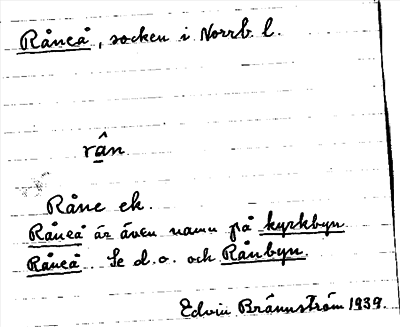 Råneå, socken i Norrb. l.
rân
Råne ek.
Råneå är även namn på kyrkbyn
Råneå. Se d. o. och Rånbyn.
Edvin Brännström 1939.